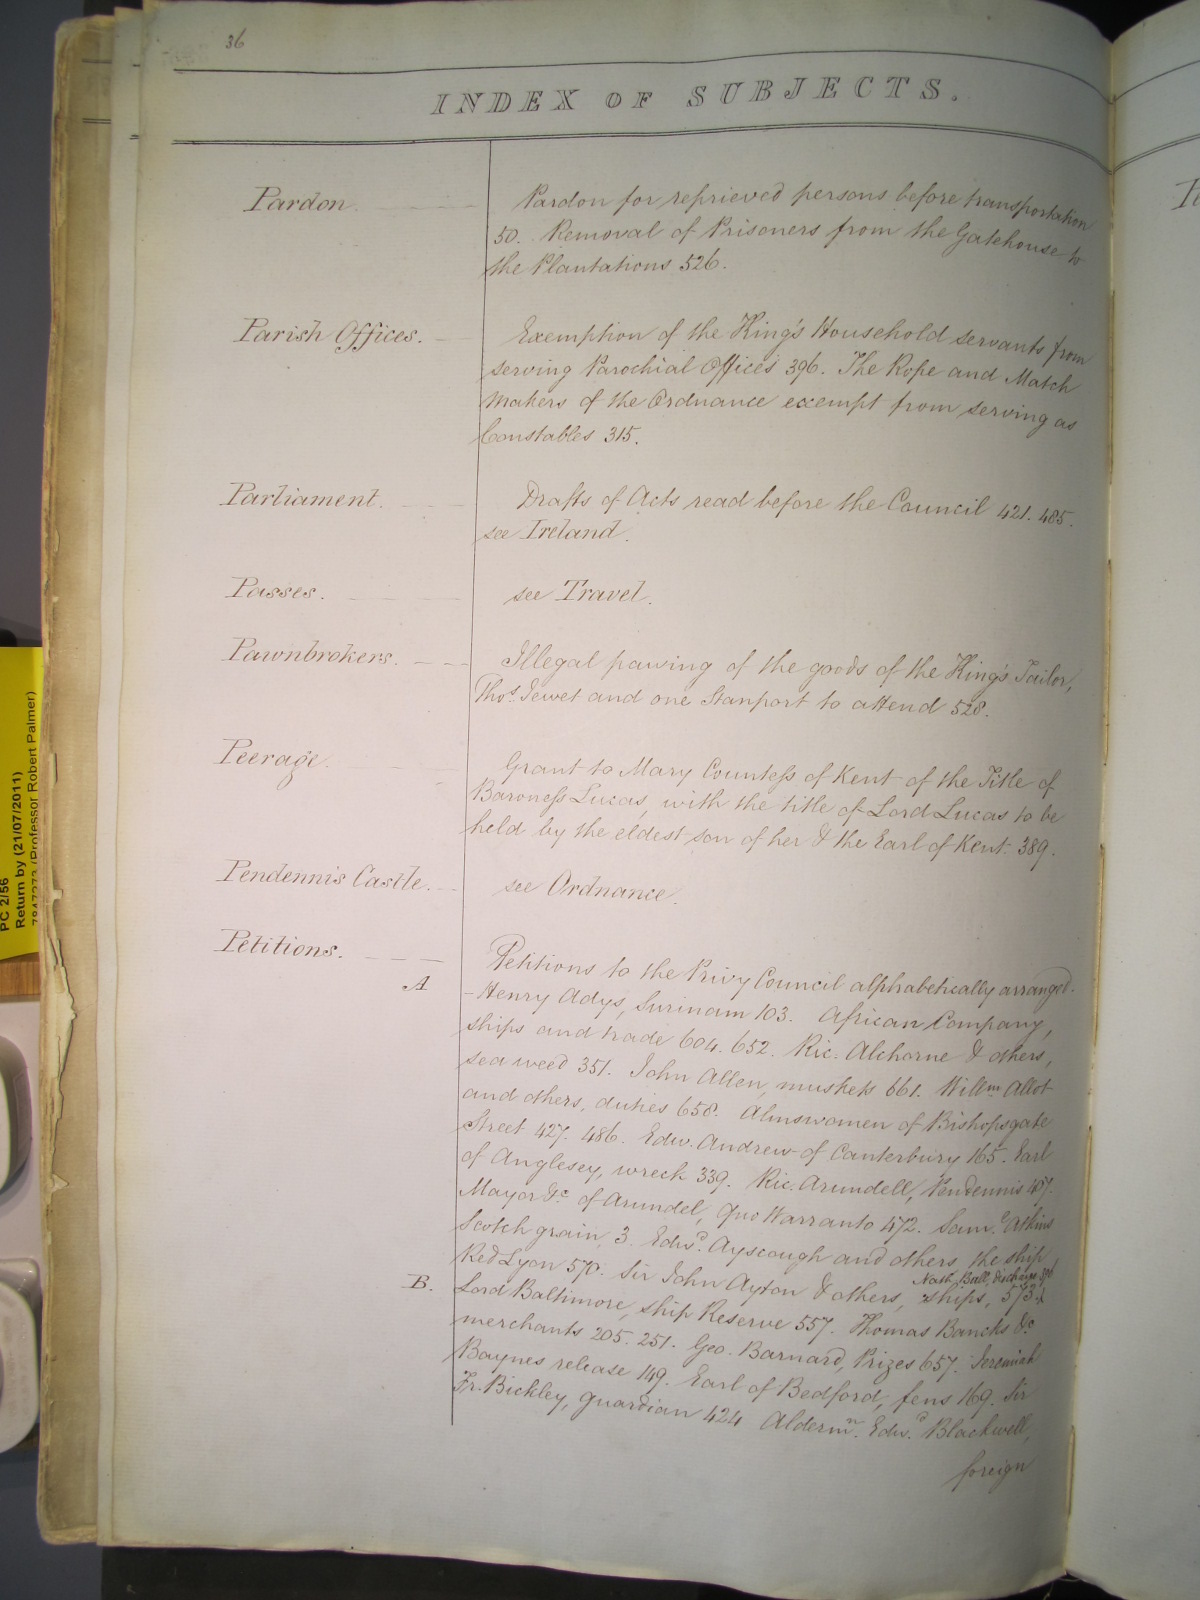 36
INDEX OF SUBJECTS.
Pardon.
Pardon for reprieved persons before transportation
50. Removal of Prisoners from the Gatehouse to
the Plantations 526.
Parish Offices.
Exemption of the King's Household servants from
serving Parochial Offices 396. The Rope and Match
Makers of the Ordnance exempt from serving as
Constables 315.
Parliament.
Drafts of Acts read before the Council 421. 485.
see Ireland.
Passes.
see Travel.
Pawnbrokers.
Illegal pawing of the goods of the King's Tailor,
Thos. Jewet and one Stanport to attend 528.
Peerage.
Grant to Mary Countess of Kent of the Title of
Baroness Lucas, with the title of Lord Lucas to be
held by the eldest son of her & the Earl of Kent 389.
Pendennis Castle.
see Ordnance.
Petitions.
Petitions to the Privy Council alphabetically arranged.
A
- Henry Adys, Surinam 103. African Company,
ships and trade 604. 652. Ric. Alchorne & others,
sea weed 351. John Allen, muskets 661. Willm Allot
and others, duties 658. Almswomen of Bishopsgate
Street 427. 486. Edw. Andrew of Canterbury 165. Earl
of Anglesey, wreck 339. Ric. Arundell, Pendennis 467.
Mayor &c of Arundel, Quo Warranto 472. Saml Atkins
Scotch grain 3. Edwd. Ayscough and others, the ship
Red Lyon 570. Sir John Ayton & others, ships, 573.
Nath. Ball, discharge
B.
Lord Baltimore, ship Reserve 557. Thomas Bancks &c
merchants 205. 251. Geo. Barnard, Prizes 657. Jeremiah
Baynes release 149. Earl of Bedford, fens 169. Sir
Fr. Bickley, guardian 424 Aldermn. Edwd. Blackwell,
foreign
PC 2/56
Return by (21/07/2011)
(Professor Robert Palmer)